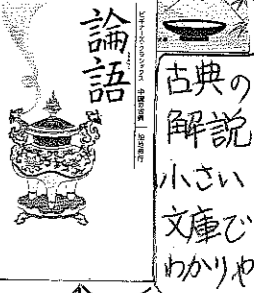 論語
ビギナーズ・クラシックス 中国の古典
加地伸行
古典の
解説
小さい
文庫で
わかりや